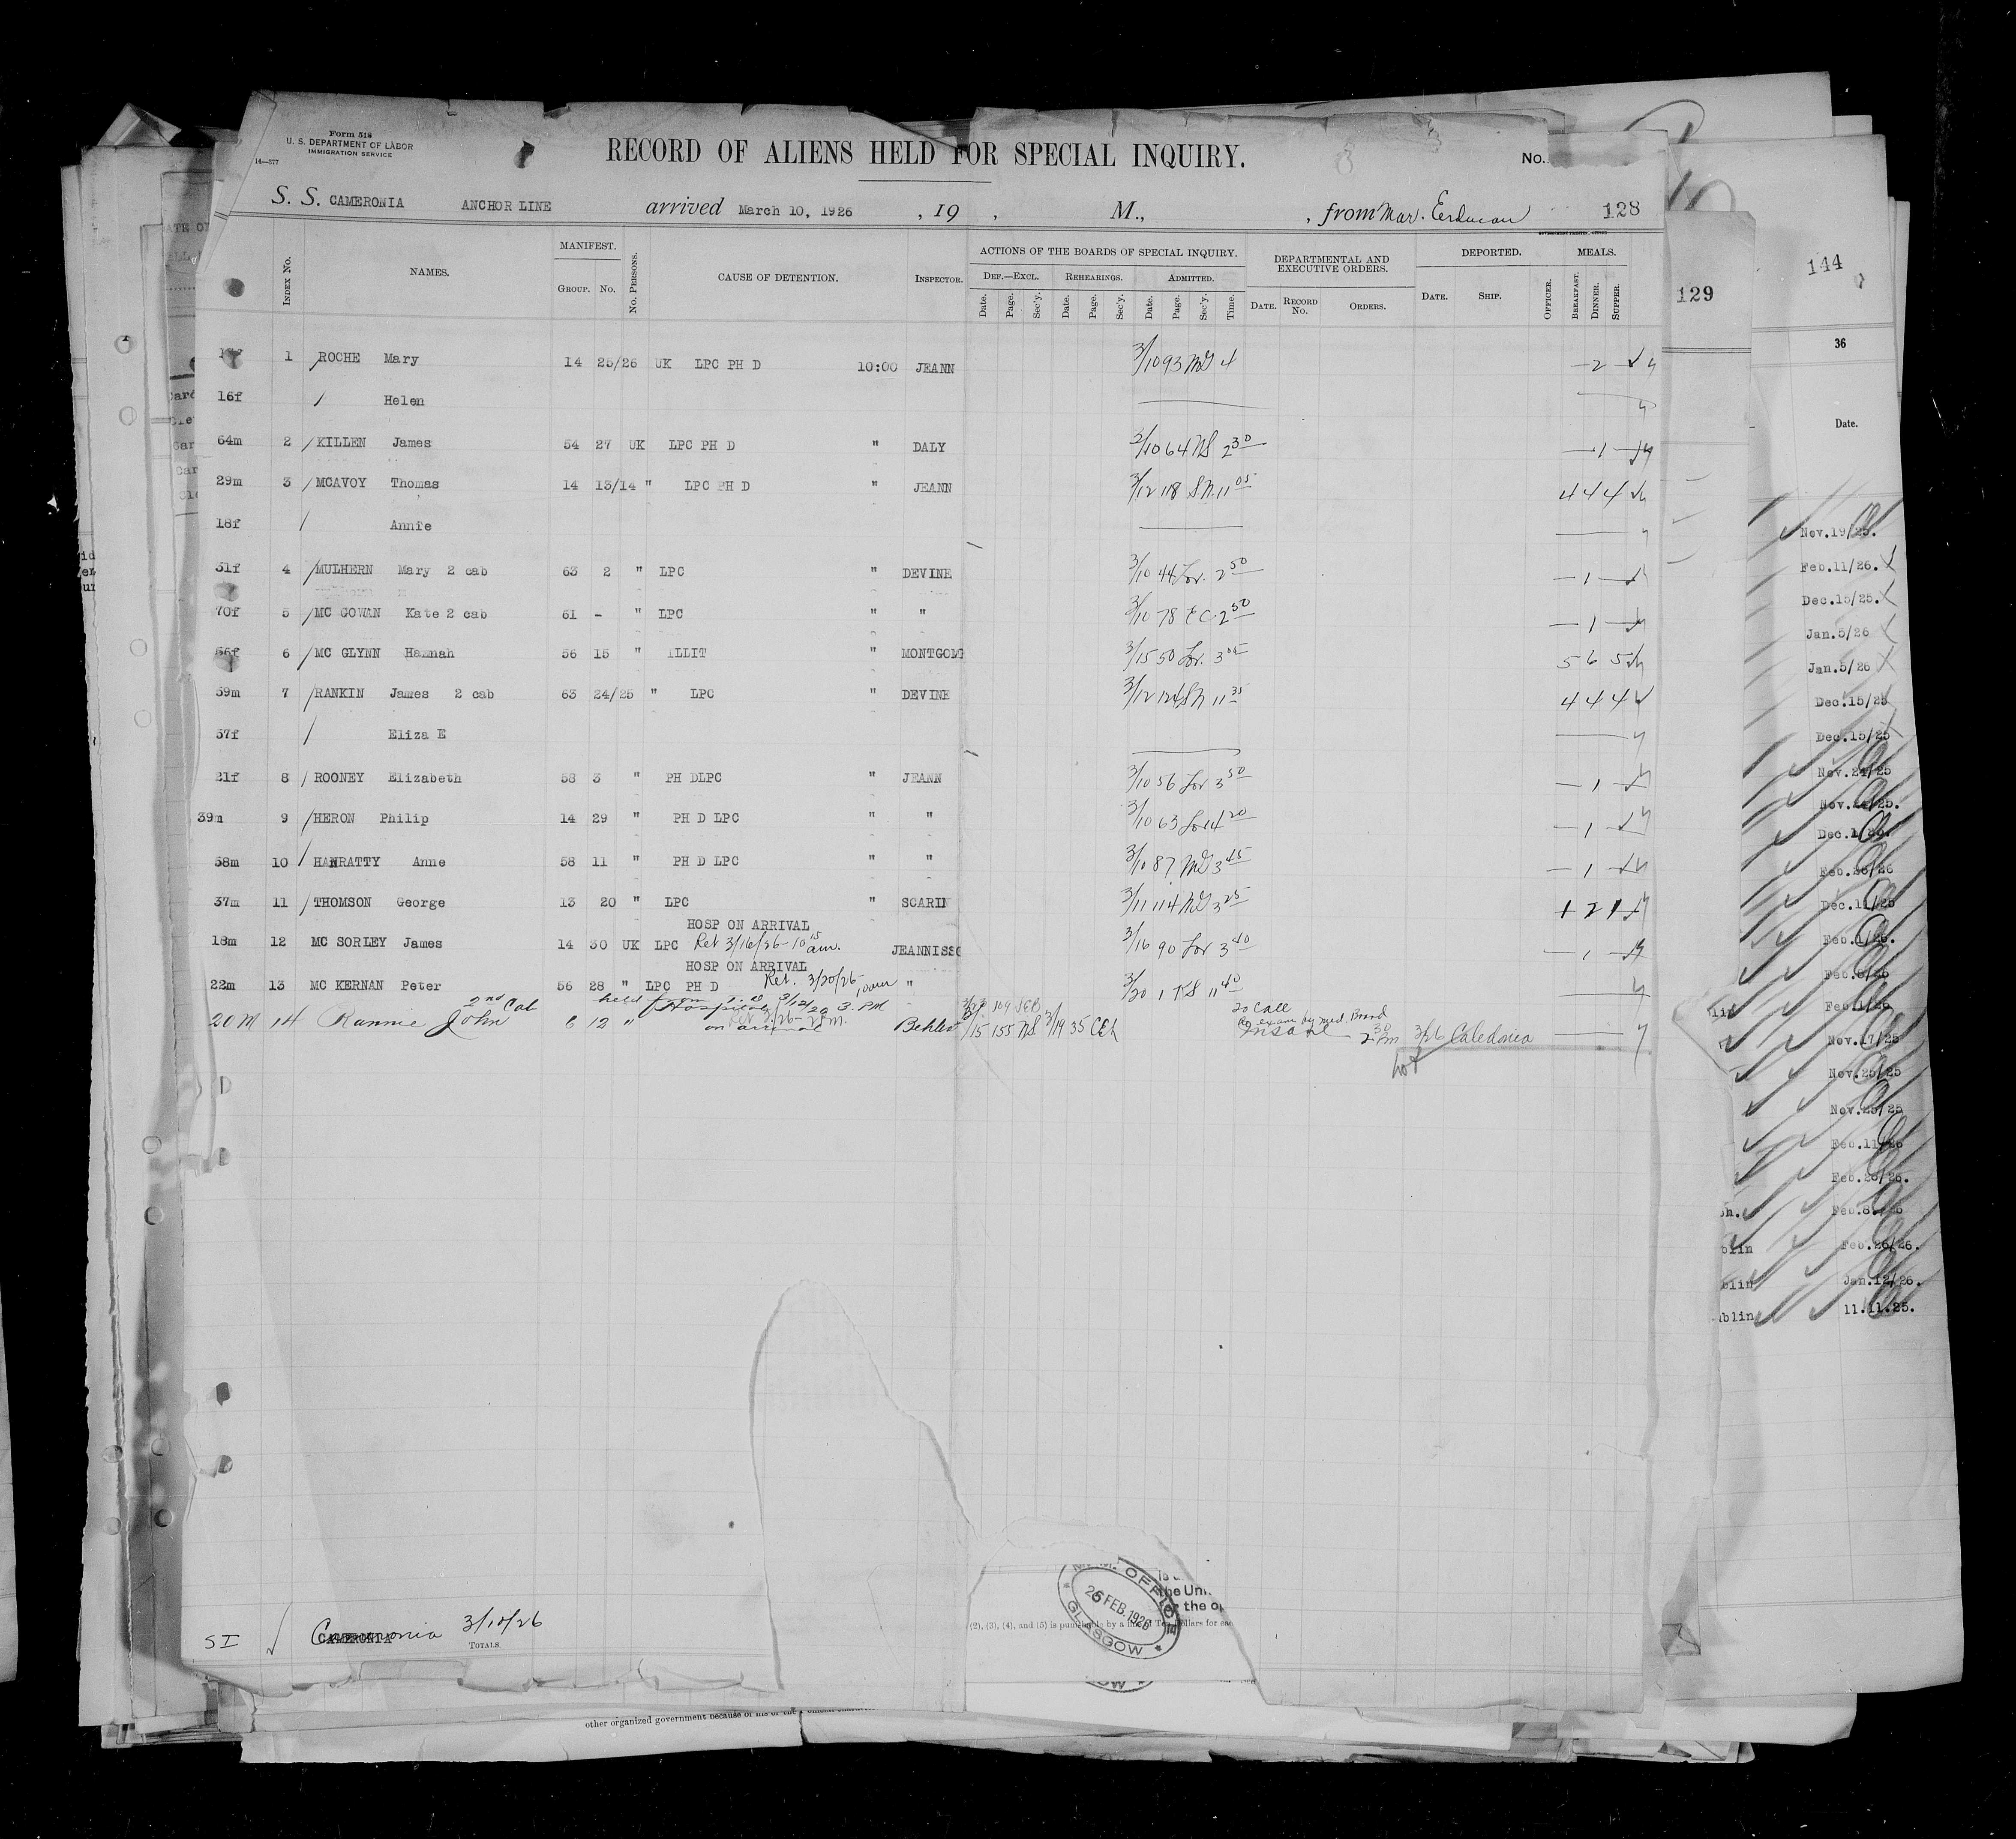 Form 518
U. S. DEPARTMENT OF LABOR
IMMIGRATION SERVICE
14—377
RECORD OF ALIENS HELD FOR SPECIAL INQUIRY.
No.
S. S. CAMERONIA ANCHOR LINE arrived March 10, 1926 , 19 , M., , from Mar. 128
INDEX No. NAMES. MANIFEST. GROUP. NO. NO. PERSONS. CAUSE OF DETENTION. INSPECTOR. ACTIONS OF THE BOARDS OF SPECIAL INQUIRY. DEF.—EXCL. REHEARINGS. ADMITTED. DEPARTMENTAL AND EXECUTIVE ORDERS. DEPORTED. MEALS.
Date. Page. Sec'y. Date. Page. Sec'y. Date. Page. Sec'y. Time. DATE. RECORD No. ORDERS. DATE. SHIP. OFFICER. BREAKFAST. DINNER. SUPPER.
1 ROCHE Mary 14 25/26 UK LPC PH D 10:00 JEANN 3/10 93 McG 4 — 2
16f Helen
64m 2 KILLEN James 54 27 UK LPC PH D " DALY 3/10 64 NS 2 30 — 1
29m 3 MCAVOY Thomas 14 13/14 " LPC PH D " JEANN 3/12 118 SN 11 05 4 4 4
18f Annie
31f 4 MULHERN Mary 2 cab 63 2 " LPC " DEVINE 3/10 44 Lov. 2 50 — 1
70f 5 MC GOWAN Kate 2 cab 61 - " LPC " " 3/10 78 EC 2 50 — 1
56f 6 MC GLYNN Hannah 56 15 " ILLIT " MONTGOM 3/15 50 Lov. 3 05 5 6 5
59m 7 RANKIN James 2 cab 63 24/25 " LPC " DEVINE 3/12 124 SN 11 35 4 4 4
57f Eliza E
21f 8 ROONEY Elizabeth 58 3 " PH DLPC " JEANN 3/10 56 Lov 3 50 — 1
39m 9 HERON Philip 14 29 " PH D LPC " " 3/10 63 Lov 4 20 — 1
58m 10 HANRATTY Anne 58 11 " PH D LPC " " 3/10 87 McG 3 45 — 1
37m 11 THOMSON George 13 20 " LPC " SCARIN 3/11 114 McG 3 25 1 2 1
HOSP ON ARRIVAL
18m 12 MC SORLEY James 14 30 UK LPC Ret 3/16/26 - 10 15 am. JEANNISSO 3/16 90 Lov 3 40 — 1
HOSP ON ARRIVAL
22m 13 MC KERNAN Peter 56 28 " LPC PH D Ret. 3/20/26 10 am " 3/20 1 RS 11 40
20 M 14 Rannie John 2nd Cab 6 12 " held from Hospital 3 PM on arrival 3/15 155 NS 3/19 35 CEL to call exam by med. Board Insane 2 30 PM 3/26 Caledonia
SI Cameronia 3/10/26
CAMERONIA
TOTALS.
OFFICE
26 FEB. 1926
GLASGOW
the Uni
(2), (3), (4), and (5) is punishable by a fine of Ten dollars for
other organized government because of his or
129
144
36
Date.
Nov.19/25.
Feb.11/26.
Dec.15/25.
Jan.5/26
Jan.5/26
Dec.15/25
Dec.15/25
Nov.24/25
Nov.24/25.
Feb.26/26
Dec.11/25
Feb.1/26.
Feb.8/26
Feb.1/26
Nov.17/25
Nov.25/25
Nov.25/25
Feb.11/26
Feb.26/26.
Feb.8/26
blin Feb.26/26.
blin Jan.12/26.
blin 11.11.25.